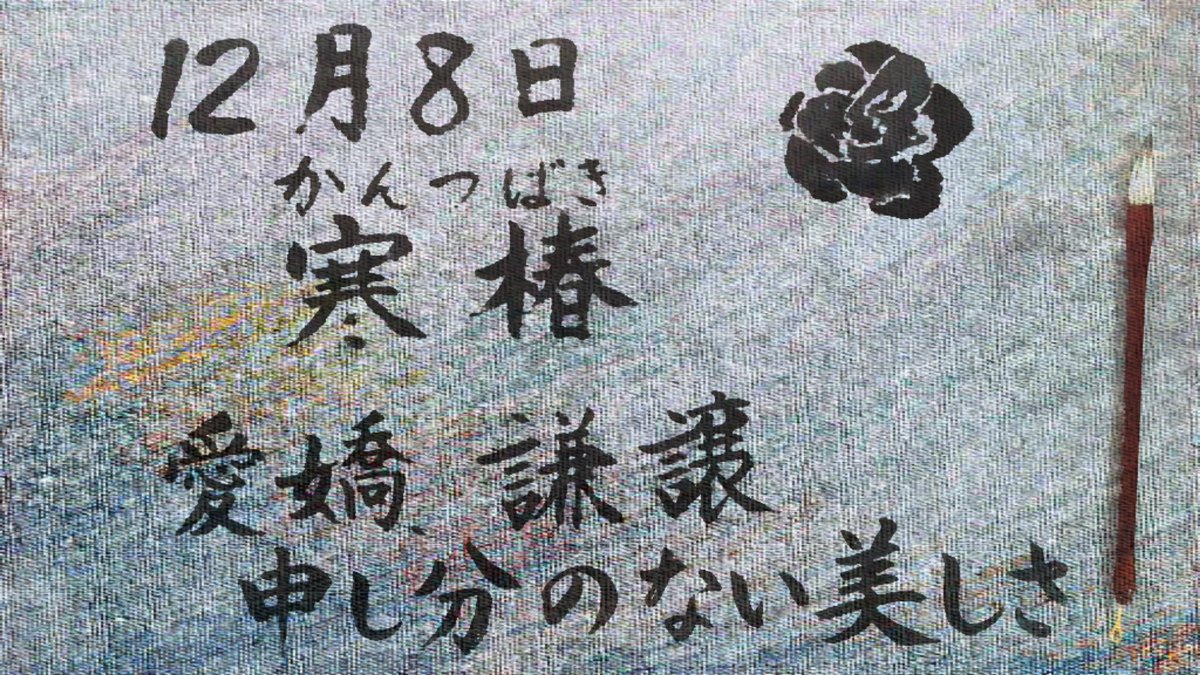 12月8日
かんつばき
寒椿
愛嬌、謙譲
申し分のない美しさ